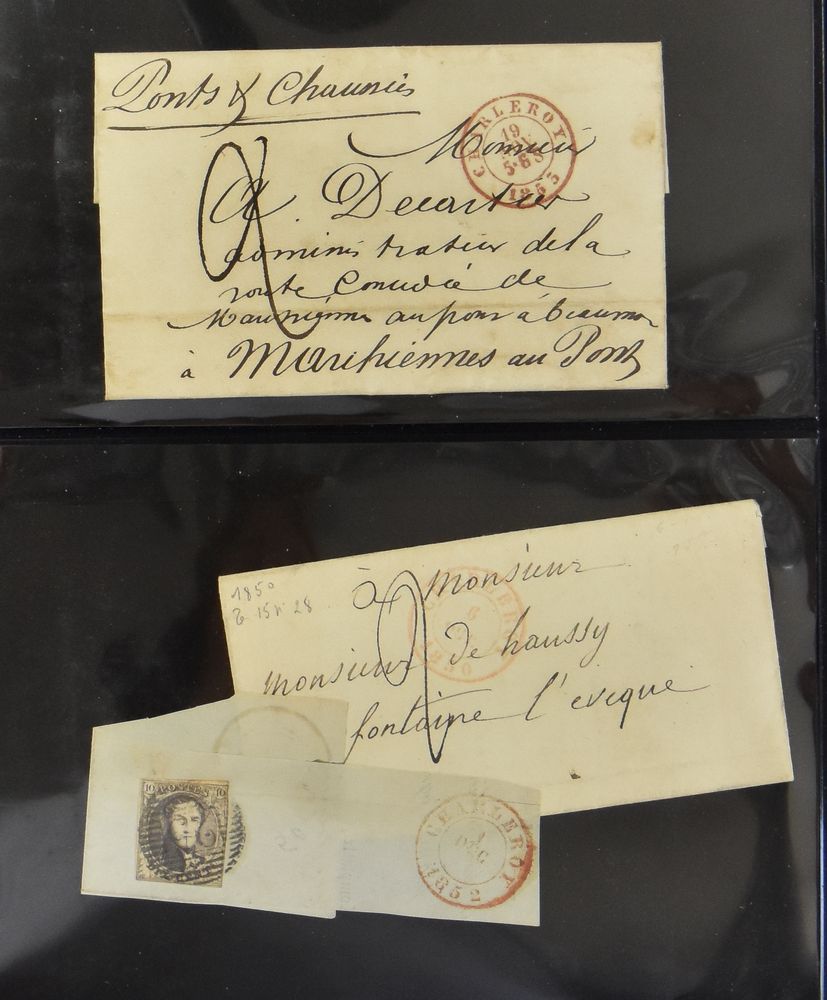 Ponts & Chaussées
Monsieur
A. Decartier
administrateur de la
route de
au pont à Beaumont
à Marchiennes au Pont
2
CHARLEROY
19
5-6S
1853
1850
T 15 N° 28
à monsieur
monsieur de haussy
fontaine l'eveque
2
6
1850
10 POSTES 10
CHARLEROY
1
DEC
1852
25